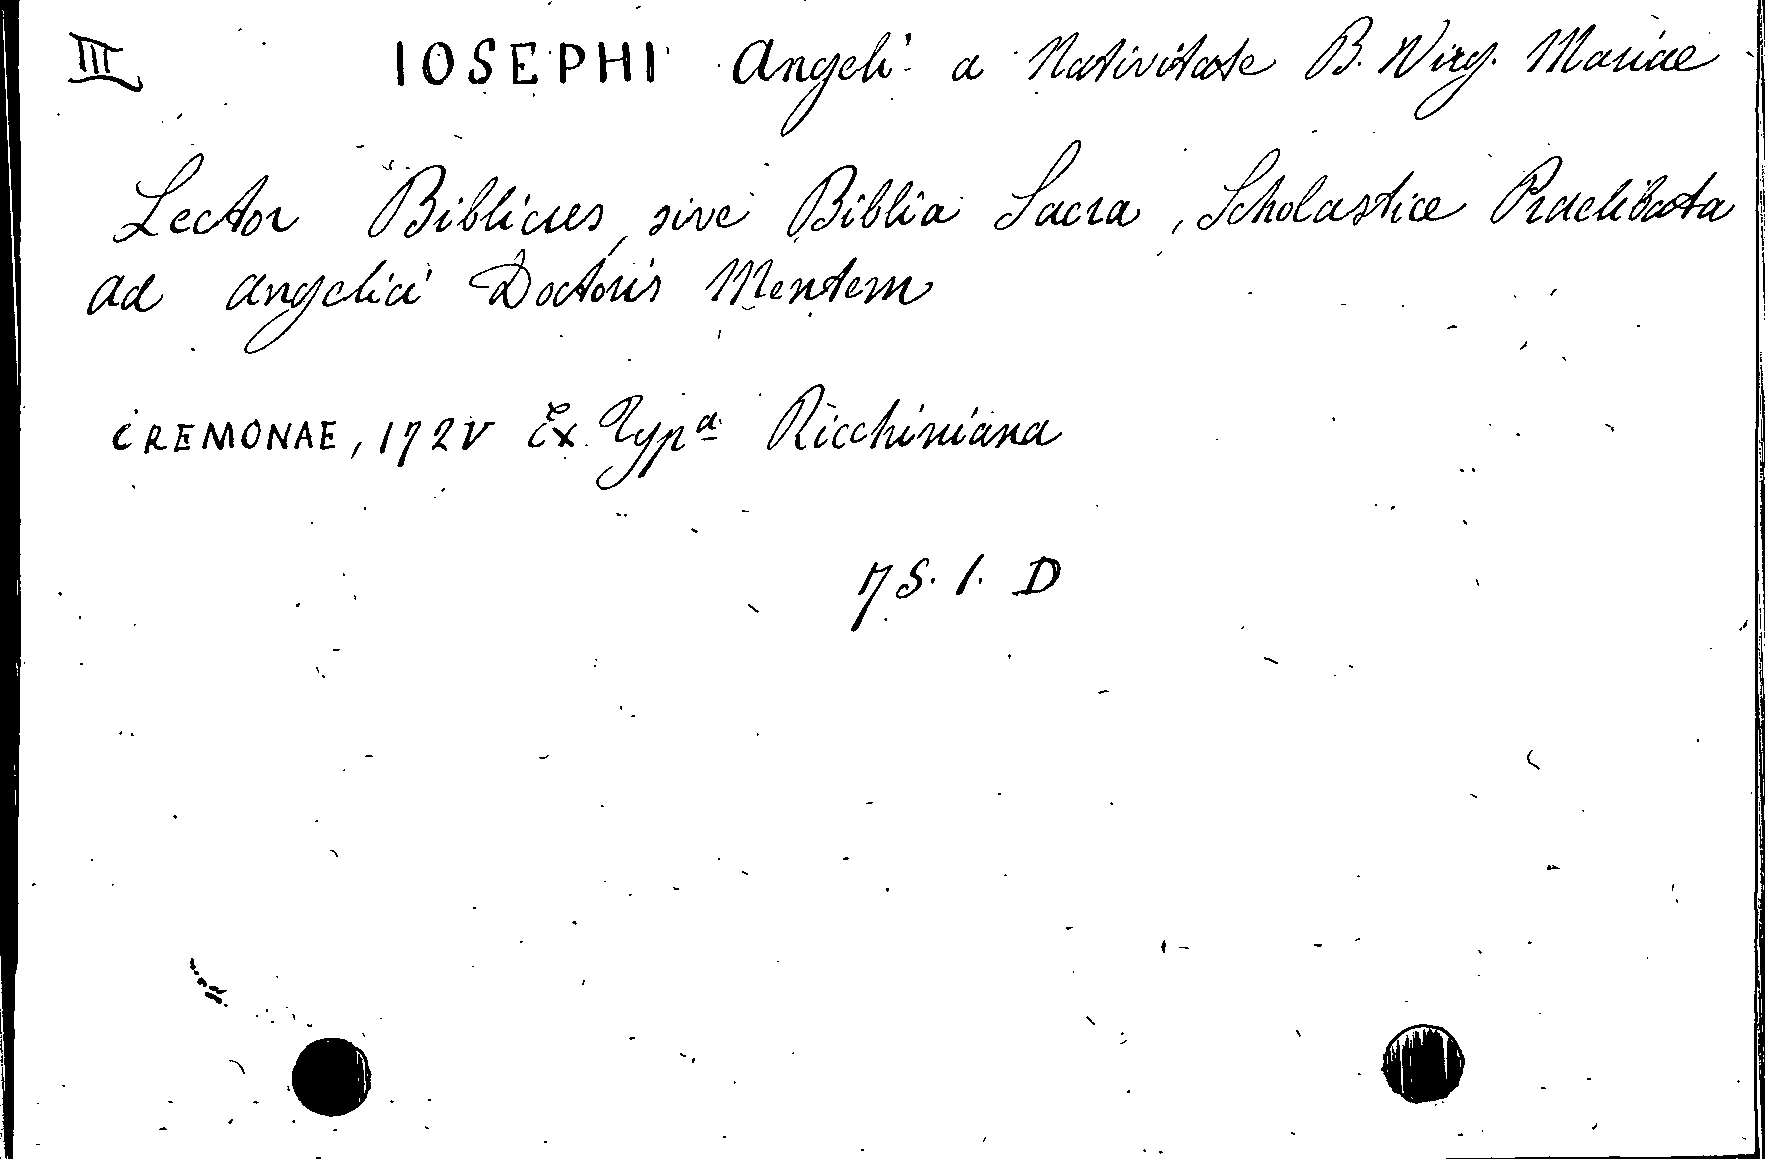 III IOSEPHI Angeli a Nativitate B. Virg. Mariae
Lector Biblicus, sive Biblia Sacra, Scholastice Praelibata
ad angelici Doctoris Mentem
CREMONAE, 172V Ex Typª Ricchiniana
75.1. D